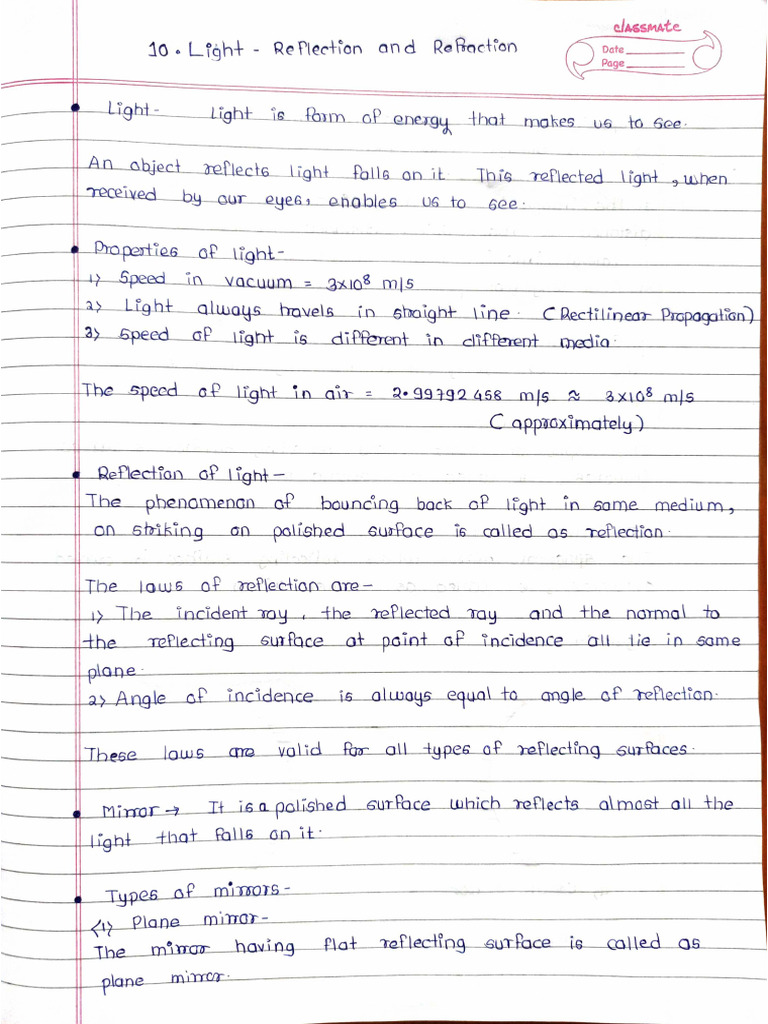 classmate
Date
Page
10. Light - Reflection and Refraction
• Light- Light is form of energy that makes us to see.
An object reflects light falls on it. This reflected light, when
received by our eyes, enables us to see.
• Properties of light-
1) Speed in vacuum = 3x10⁸ m/s
2) Light always travels in straight line. (Rectilinear Propagation)
3) Speed of light is different in different media.
The speed of light in air = 2.99792458 m/s ≈ 3x10⁸ m/s
(approximately)
• Reflection of light-
The phenomenon of bouncing back of light in same medium,
on striking on polished surface is called as reflection.
The laws of reflection are-
1) The incident ray, the reflected ray and the normal to
the reflecting surface at point of incidence all lie in same
plane.
2) Angle of incidence is always equal to angle of reflection.
These laws are valid for all types of reflecting surfaces.
• Mirror → It is a polished surface which reflects almost all the
light that falls on it.
• Types of mirrors-
<1> Plane mirror-
The mirror having flat reflecting surface is called as
plane mirror.